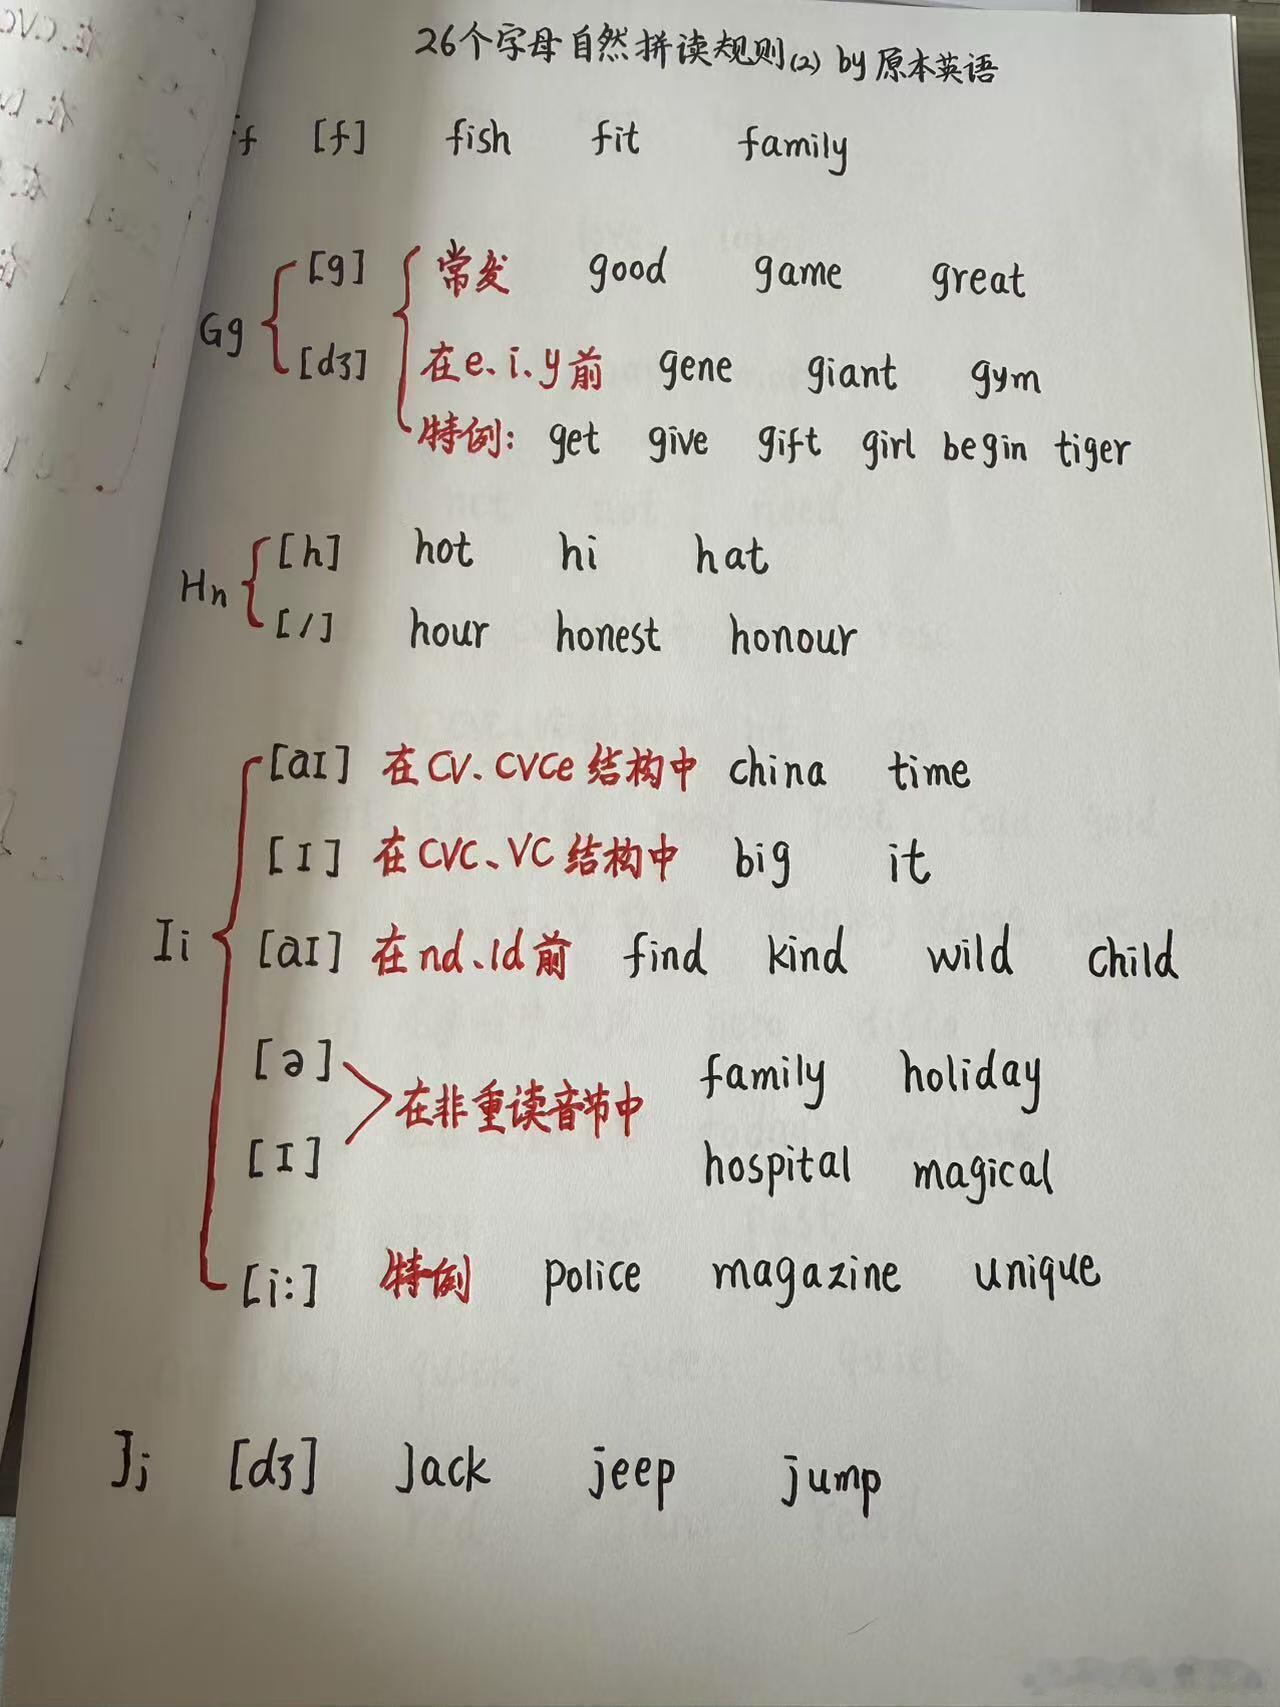 26个字母自然拼读规则(2) by 原本英语
f [f] fish fit family
Gg [g] 常发 good game great
[dʒ] 在e、i、y前 gene giant gym
特例: get give gift girl begin tiger
Hh [h] hot hi hat
[/] hour honest honour
Ii [aɪ] 在CV、CVCe结构中 china time
[ɪ] 在CVC、VC结构中 big it
[aɪ] 在nd、ld前 find kind wild child
[ə] [ɪ] 在非重读音节中 family holiday
hospital magical
[i:] 特例 police magazine unique
Jj [dʒ] Jack jeep jump